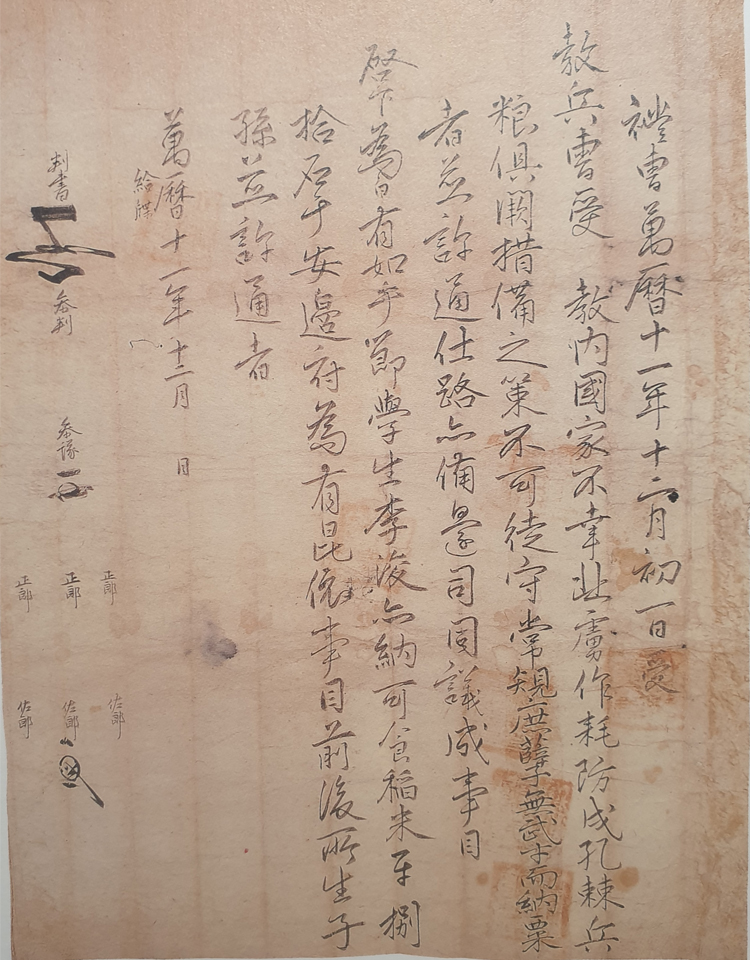 禮曹萬曆十一年十二月初一日受
教兵曹受 教內國家不幸北虜作耗防戍孔棘兵
粮俱闕措備之策不可徒守常規庶孽無武才而納粟
者並許通仕路亦備邊司同議成事目
啓下爲白有如乎節學生李浚亦納可食稻米平捌
拾石于安邊府爲有昆依事目前後所生子
孫並許通者
萬曆十一年十二月 日
給牒
正郎 佐郎
判書 參判 參議 正郎 佐郎
正郎 佐郎